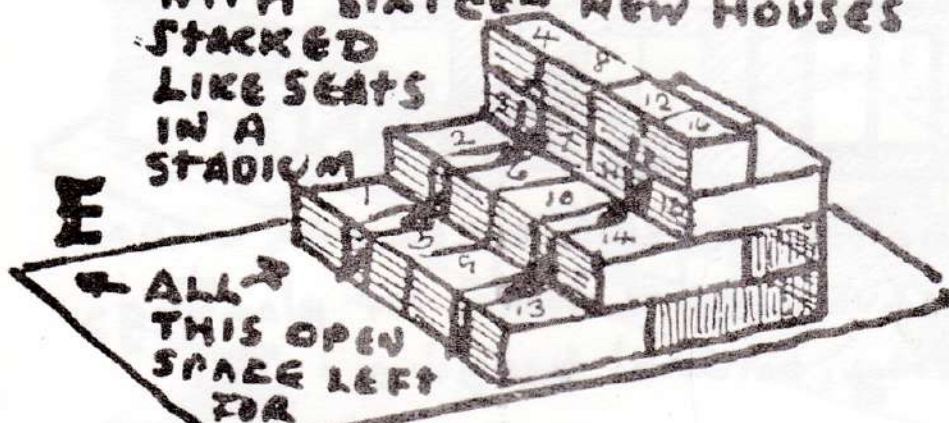 WITH SIXTEEN NEW HOUSES
STACKED
LIKE SEATS
IN A
STADIUM
E
ALL
THIS OPEN
SPACE LEFT
FOR
4
8
12
16
3
7
11
15
2
6
10
14
1
5
9
13